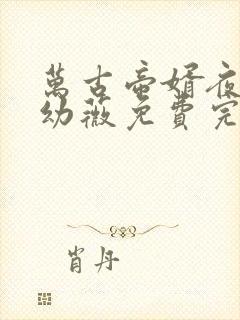 萬古帝婿夜
幼薇免費完
肖丹